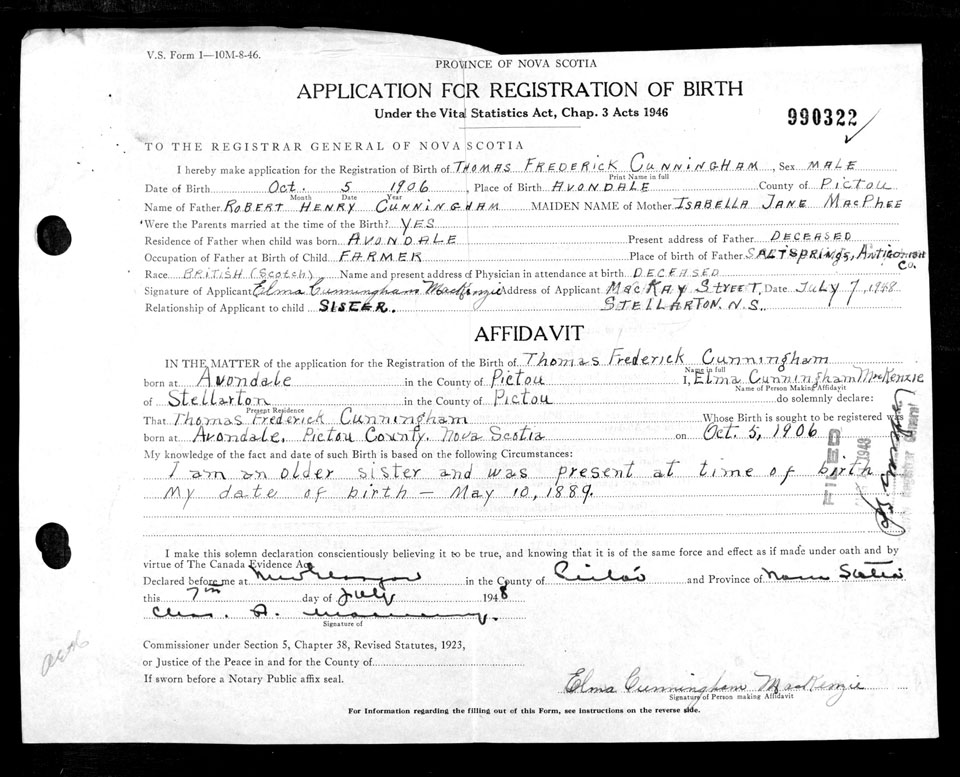 V.S. Form 1—10M-8-46.
PROVINCE OF NOVA SCOTIA
APPLICATION FOR REGISTRATION OF BIRTH
Under the Vital Statistics Act, Chap. 3 Acts 1946
990322
TO THE REGISTRAR GENERAL OF NOVA SCOTIA
I hereby make application for the Registration of Birth of THOMAS FREDERICK CUNNINGHAM, Sex MALE
Print Name in full
Date of Birth Oct. 5 1906, Place of Birth AVONDALE County of PICTOU
Month Date Year
Name of Father ROBERT HENRY CUNNINGHAM MAIDEN NAME of Mother ISABELLA JANE MACPHEE
Were the Parents married at the time of the Birth? YES
Residence of Father when child was born AVONDALE Present address of Father DECEASED
Occupation of Father at Birth of Child FARMER Place of birth of Father SALTSPRINGS, ANTIGONISH CO.
Race BRITISH (Scotch) Name and present address of Physician in attendance at birth DECEASED
Signature of Applicant Elma Cunningham MacKenzie Address of Applicant MACKAY STREET, Date JULY 7, 1948
Relationship of Applicant to child SISTER. STELLARTON. N.S.
AFFIDAVIT
IN THE MATTER of the application for the Registration of the Birth of Thomas Frederick Cunningham
Name in full
born at Avondale in the County of Pictou I, Elma Cunningham MacKenzie
Name of Person Making Affidavit
of Stellarton in the County of Pictou do solemnly declare:
Present Residence
That Thomas Frederick Cunningham Whose Birth is sought to be registered was
born at Avondale, Pictou County, Nova Scotia on Oct. 5, 1906
My knowledge of the fact and date of such Birth is based on the following Circumstances:
I am an older sister and was present at time of birth
My date of birth — May 10, 1889.
FILED
1948
I make this solemn declaration conscientiously believing it to be true, and knowing that it is of the same force and effect as if made under oath and by
virtue of The Canada Evidence Act.
Declared before me at New Glasgow in the County of Pictou and Province of Nova Scotia
this 7th day of July 1948
Chas. A.
Signature of
Commissioner under Section 5, Chapter 38, Revised Statutes, 1923,
or Justice of the Peace in and for the County of
If sworn before a Notary Public affix seal.
Elma Cunningham MacKenzie
Signature of Person making Affidavit
For Information regarding the filling out of this Form, see instructions on the reverse side.